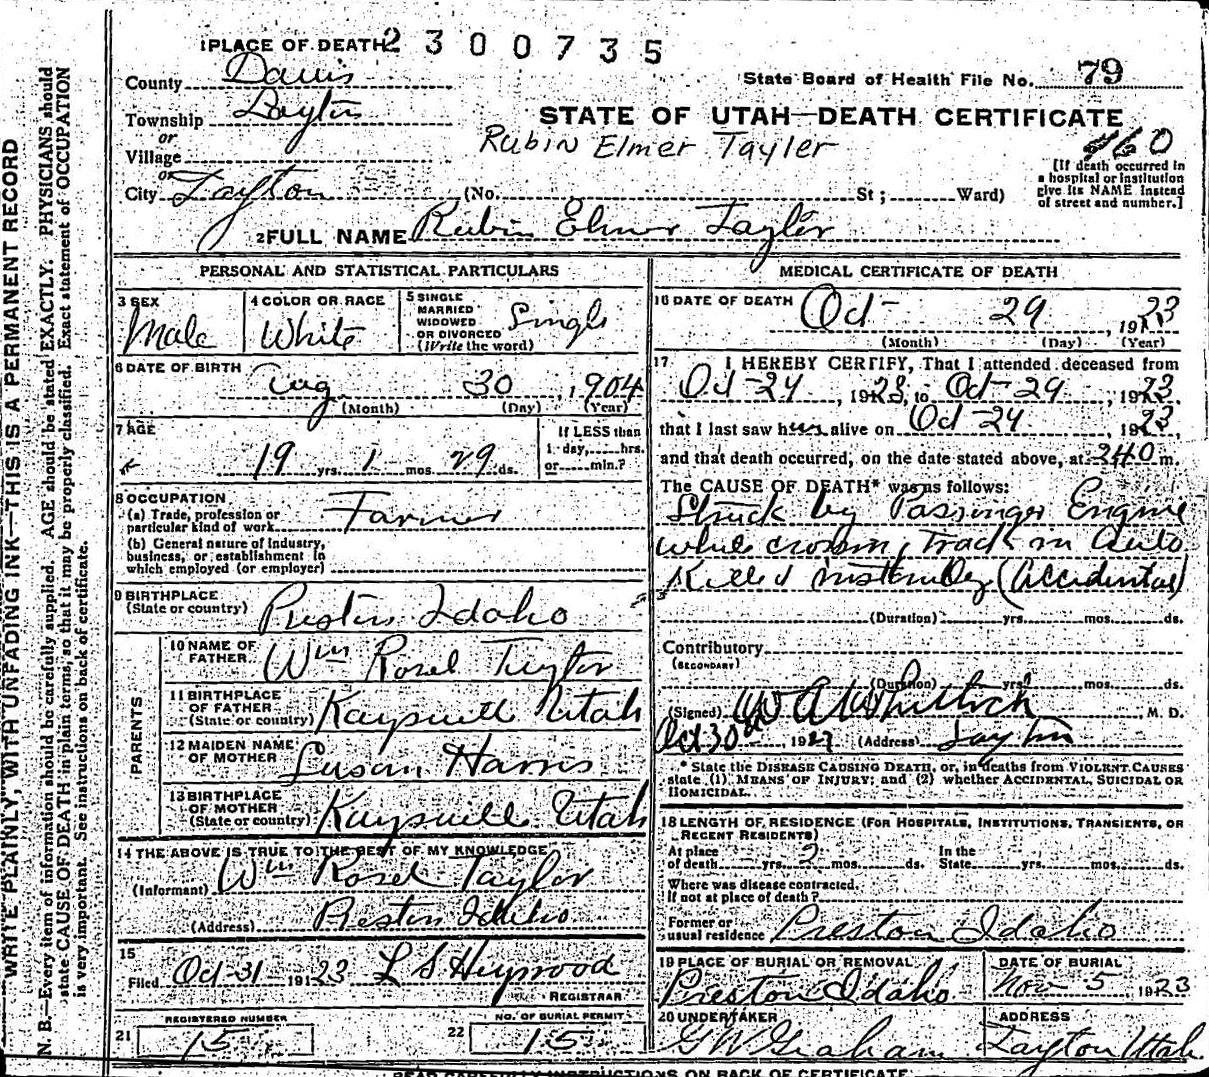 WRITE PLAINLY, WITH UNFADING INK—THIS IS A PERMANENT RECORD
N. B.—Every item of information should be carefully supplied. AGE should be stated EXACTLY. PHYSICIANS should
state CAUSE OF DEATH in plain terms, so that it may be properly classified. Exact statement of OCCUPATION
is very important. See instructions on back of certificate.
1 PLACE OF DEATH 2300735
County Davis
State Board of Health File No. 79
Township Layton
STATE OF UTAH—DEATH CERTIFICATE
or
Rubin Elmer Tayler
460
Village
[If death occurred in
a hospital or institution
give its NAME instead
of street and number.]
or
City Layton (No. St; Ward)
2 FULL NAME Rubin Elmer Taylor
PERSONAL AND STATISTICAL PARTICULARS
3 SEX
Male
4 COLOR OR RACE
White
5 SINGLE
MARRIED
WIDOWED
OR DIVORCED
(Write the word)
Single
6 DATE OF BIRTH
Aug 30, 1904
(Month) (Day) (Year)
7 AGE
19 yrs. 1 mos. 29 ds.
If LESS than
1 day, hrs.
or min.?
8 OCCUPATION
(a) Trade, profession or
particular kind of work Farmer
(b) General nature of industry,
business, or establishment in
which employed (or employer)
9 BIRTHPLACE
(State or country) Preston Idaho
PARENTS
10 NAME OF
FATHER Wm Rosel Taylor
11 BIRTHPLACE
OF FATHER
(State or country) Kaysville Utah
12 MAIDEN NAME
OF MOTHER Susan Harris
13 BIRTHPLACE
OF MOTHER
(State or country) Kaysville Utah
14 THE ABOVE IS TRUE TO THE BEST OF MY KNOWLEDGE
(Informant) Wm Rosel Taylor
(Address) Preston Idaho
15
Filed Oct-31-1923 L S Heywood
REGISTRAR
REGISTERED NUMBER
21 15
NO. OF BURIAL PERMIT
22 15
MEDICAL CERTIFICATE OF DEATH
16 DATE OF DEATH
Oct- 29, 1923
(Month) (Day) (Year)
17 I HEREBY CERTIFY, That I attended deceased from
Oct-29, 1923, to Oct-29, 1923
that I last saw him alive on Oct-29, 1923,
and that death occurred, on the date stated above, at 240 m.
The CAUSE OF DEATH* was as follows:
Struck by Passinger Engine
while crossing Track in Auto
Killed instantly (Accidental)
(Duration) yrs. mos. ds.
Contributory
(SECONDARY)
(Duration) yrs. mos. ds.
(Signed) W A Whitlock, M. D.
Oct 30, 1923 (Address) Layton
* State the DISEASE CAUSING DEATH, or, in deaths from VIOLENT CAUSES
state (1) MEANS OF INJURY; and (2) whether ACCIDENTAL, SUICIDAL OR
HOMICIDAL.
18 LENGTH OF RESIDENCE (FOR HOSPITALS, INSTITUTIONS, TRANSIENTS, OR
RECENT RESIDENTS)
At place
of death yrs. 2 mos. ds.
In the
State yrs. mos. ds.
Where was disease contracted,
If not at place of death?
Former or
usual residence Preston Idaho
19 PLACE OF BURIAL OR REMOVAL
Preston Idaho
DATE OF BURIAL
Nov 5, 1923
20 UNDERTAKER
G W Graham
ADDRESS
Layton Utah
READ CAREFULLY INSTRUCTIONS ON BACK OF CERTIFICATE.